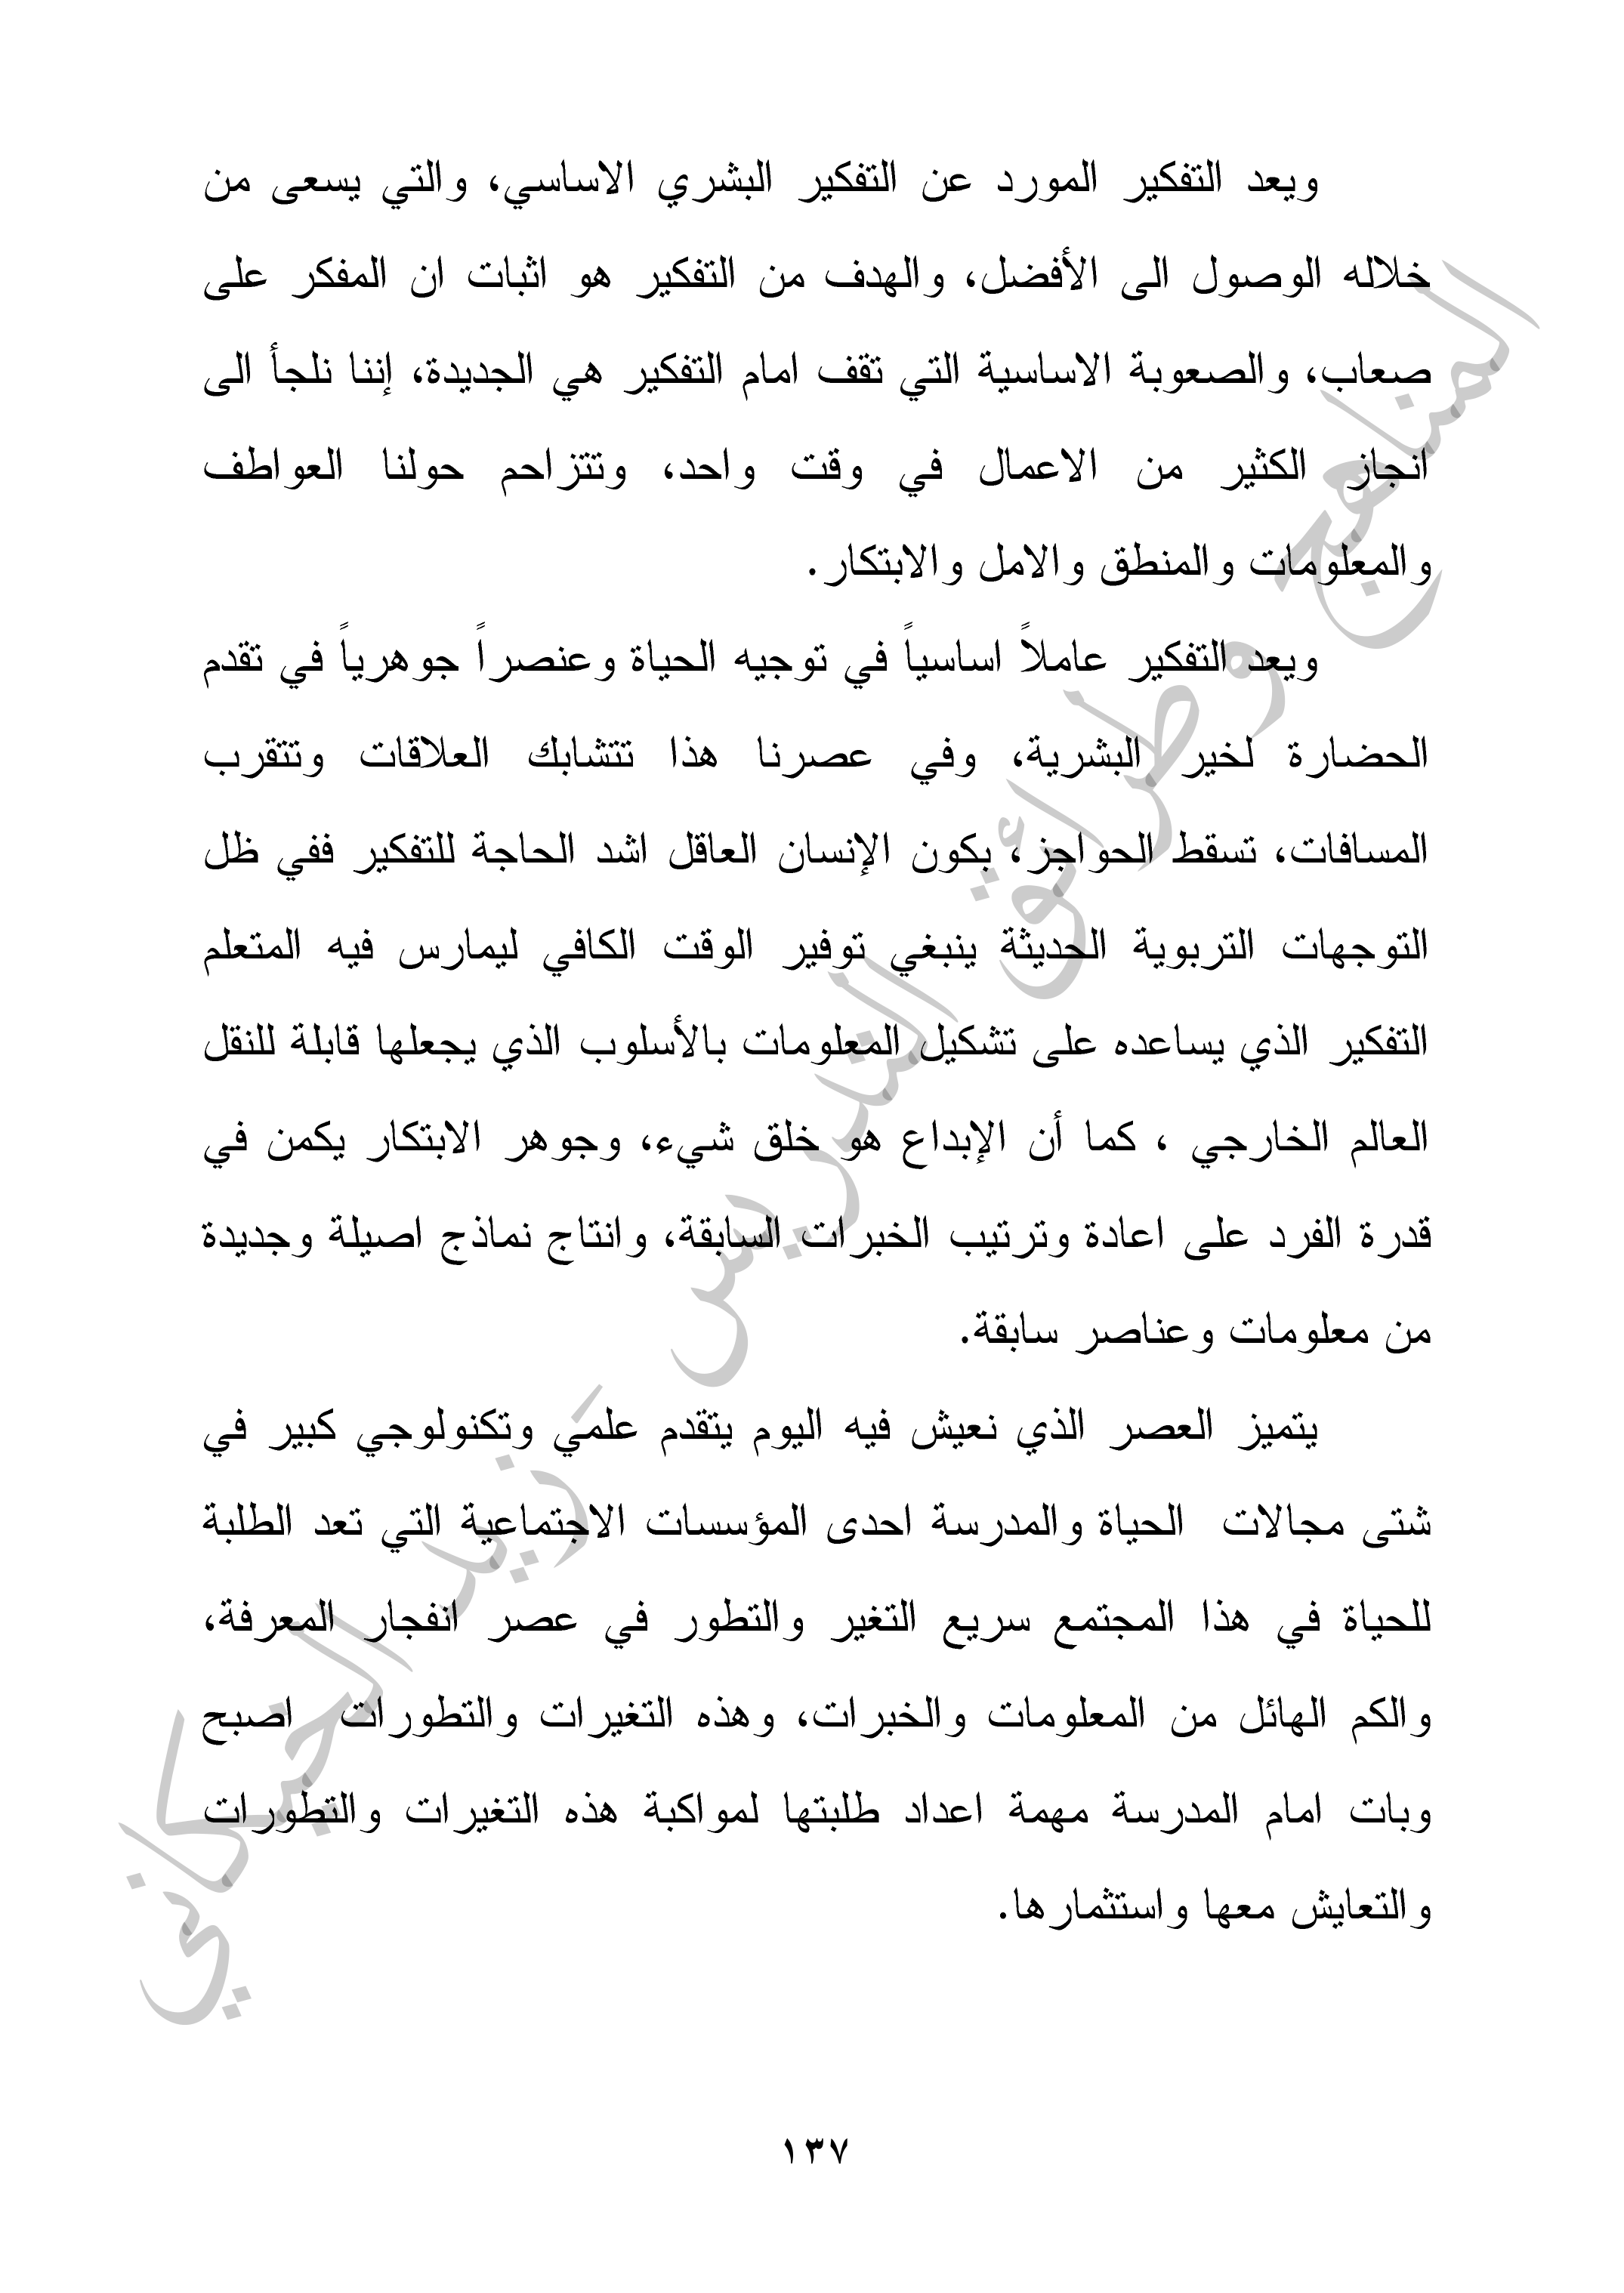 ويعد التفكير المورد عن التفكير البشري الاساسي، والتي يسعى من
خلاله الوصول الى الأفضل، والهدف من التفكير هو اثبات ان المفكر على
صعاب، والصعوبة الاساسية التي تقف امام التفكير هي الجديدة، إننا نلجأ الى
انجاز الكثير من الاعمال في وقت واحد، وتتزاحم حولنا العواطف
والمعلومات والمنطق والامل والابتكار.
ويعد التفكير عاملاً اساسياً في توجيه الحياة وعنصراً جوهرياً في تقدم
الحضارة لخير البشرية، وفي عصرنا هذا تتشابك العلاقات وتتقرب
المسافات، تسقط الحواجز، بكون الإنسان العاقل اشد الحاجة للتفكير ففي ظل
التوجهات التربوية الحديثة ينبغي توفير الوقت الكافي ليمارس فيه المتعلم
التفكير الذي يساعده على تشكيل المعلومات بالأسلوب الذي يجعلها قابلة للنقل
العالم الخارجي ، كما أن الإبداع هو خلق شيء، وجوهر الابتكار يكمن في
قدرة الفرد على اعادة وترتيب الخبرات السابقة، وانتاج نماذج اصيلة وجديدة
من معلومات وعناصر سابقة.
يتميز العصر الذي نعيش فيه اليوم يتقدم علمي وتكنولوجي كبير في
شتى مجالات الحياة والمدرسة احدى المؤسسات الاجتماعية التي تعد الطلبة
للحياة في هذا المجتمع سريع التغير والتطور في عصر انفجار المعرفة،
والكم الهائل من المعلومات والخبرات، وهذه التغيرات والتطورات اصبح
وبات امام المدرسة مهمة اعداد طلبتها لمواكبة هذه التغيرات والتطورات
والتعايش معها واستثمارها.
المناهج وطرائق التدريس - زيد الخيكاني
١٣٧